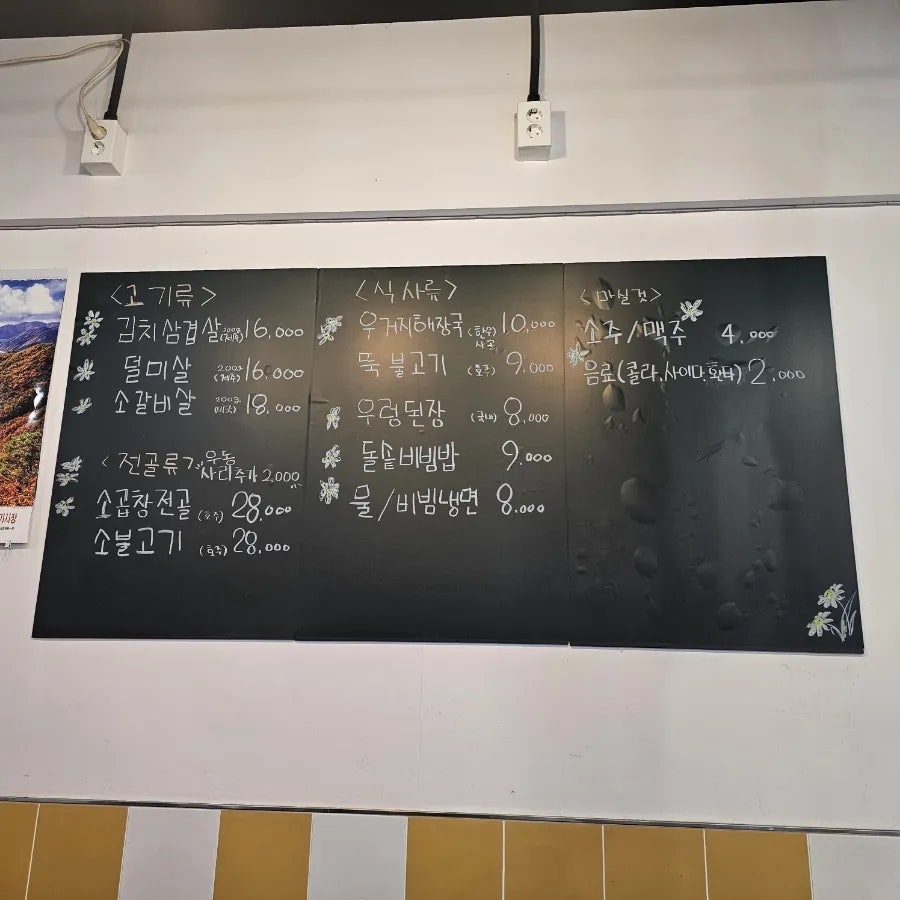 <고기류>
김치삼겹살 200g (제주) 16,000
덜미살 200g (제주) 16,000
소갈비살 200g (미국) 18,000
<전골류> 우동
사리추가 2,000
소곱창전골 (호주) 28,000
소불고기 (호주) 28,000
<식사류>
우거지해장국 (한우) 10,000
사골
뚝불고기 (호주) 9,000
우렁된장 (국내) 8,000
돌솥비빔밥 9,000
물/비빔냉면 8,000
<마실것>
소주/맥주 4,000
음료(콜라,사이다,환타) 2,000